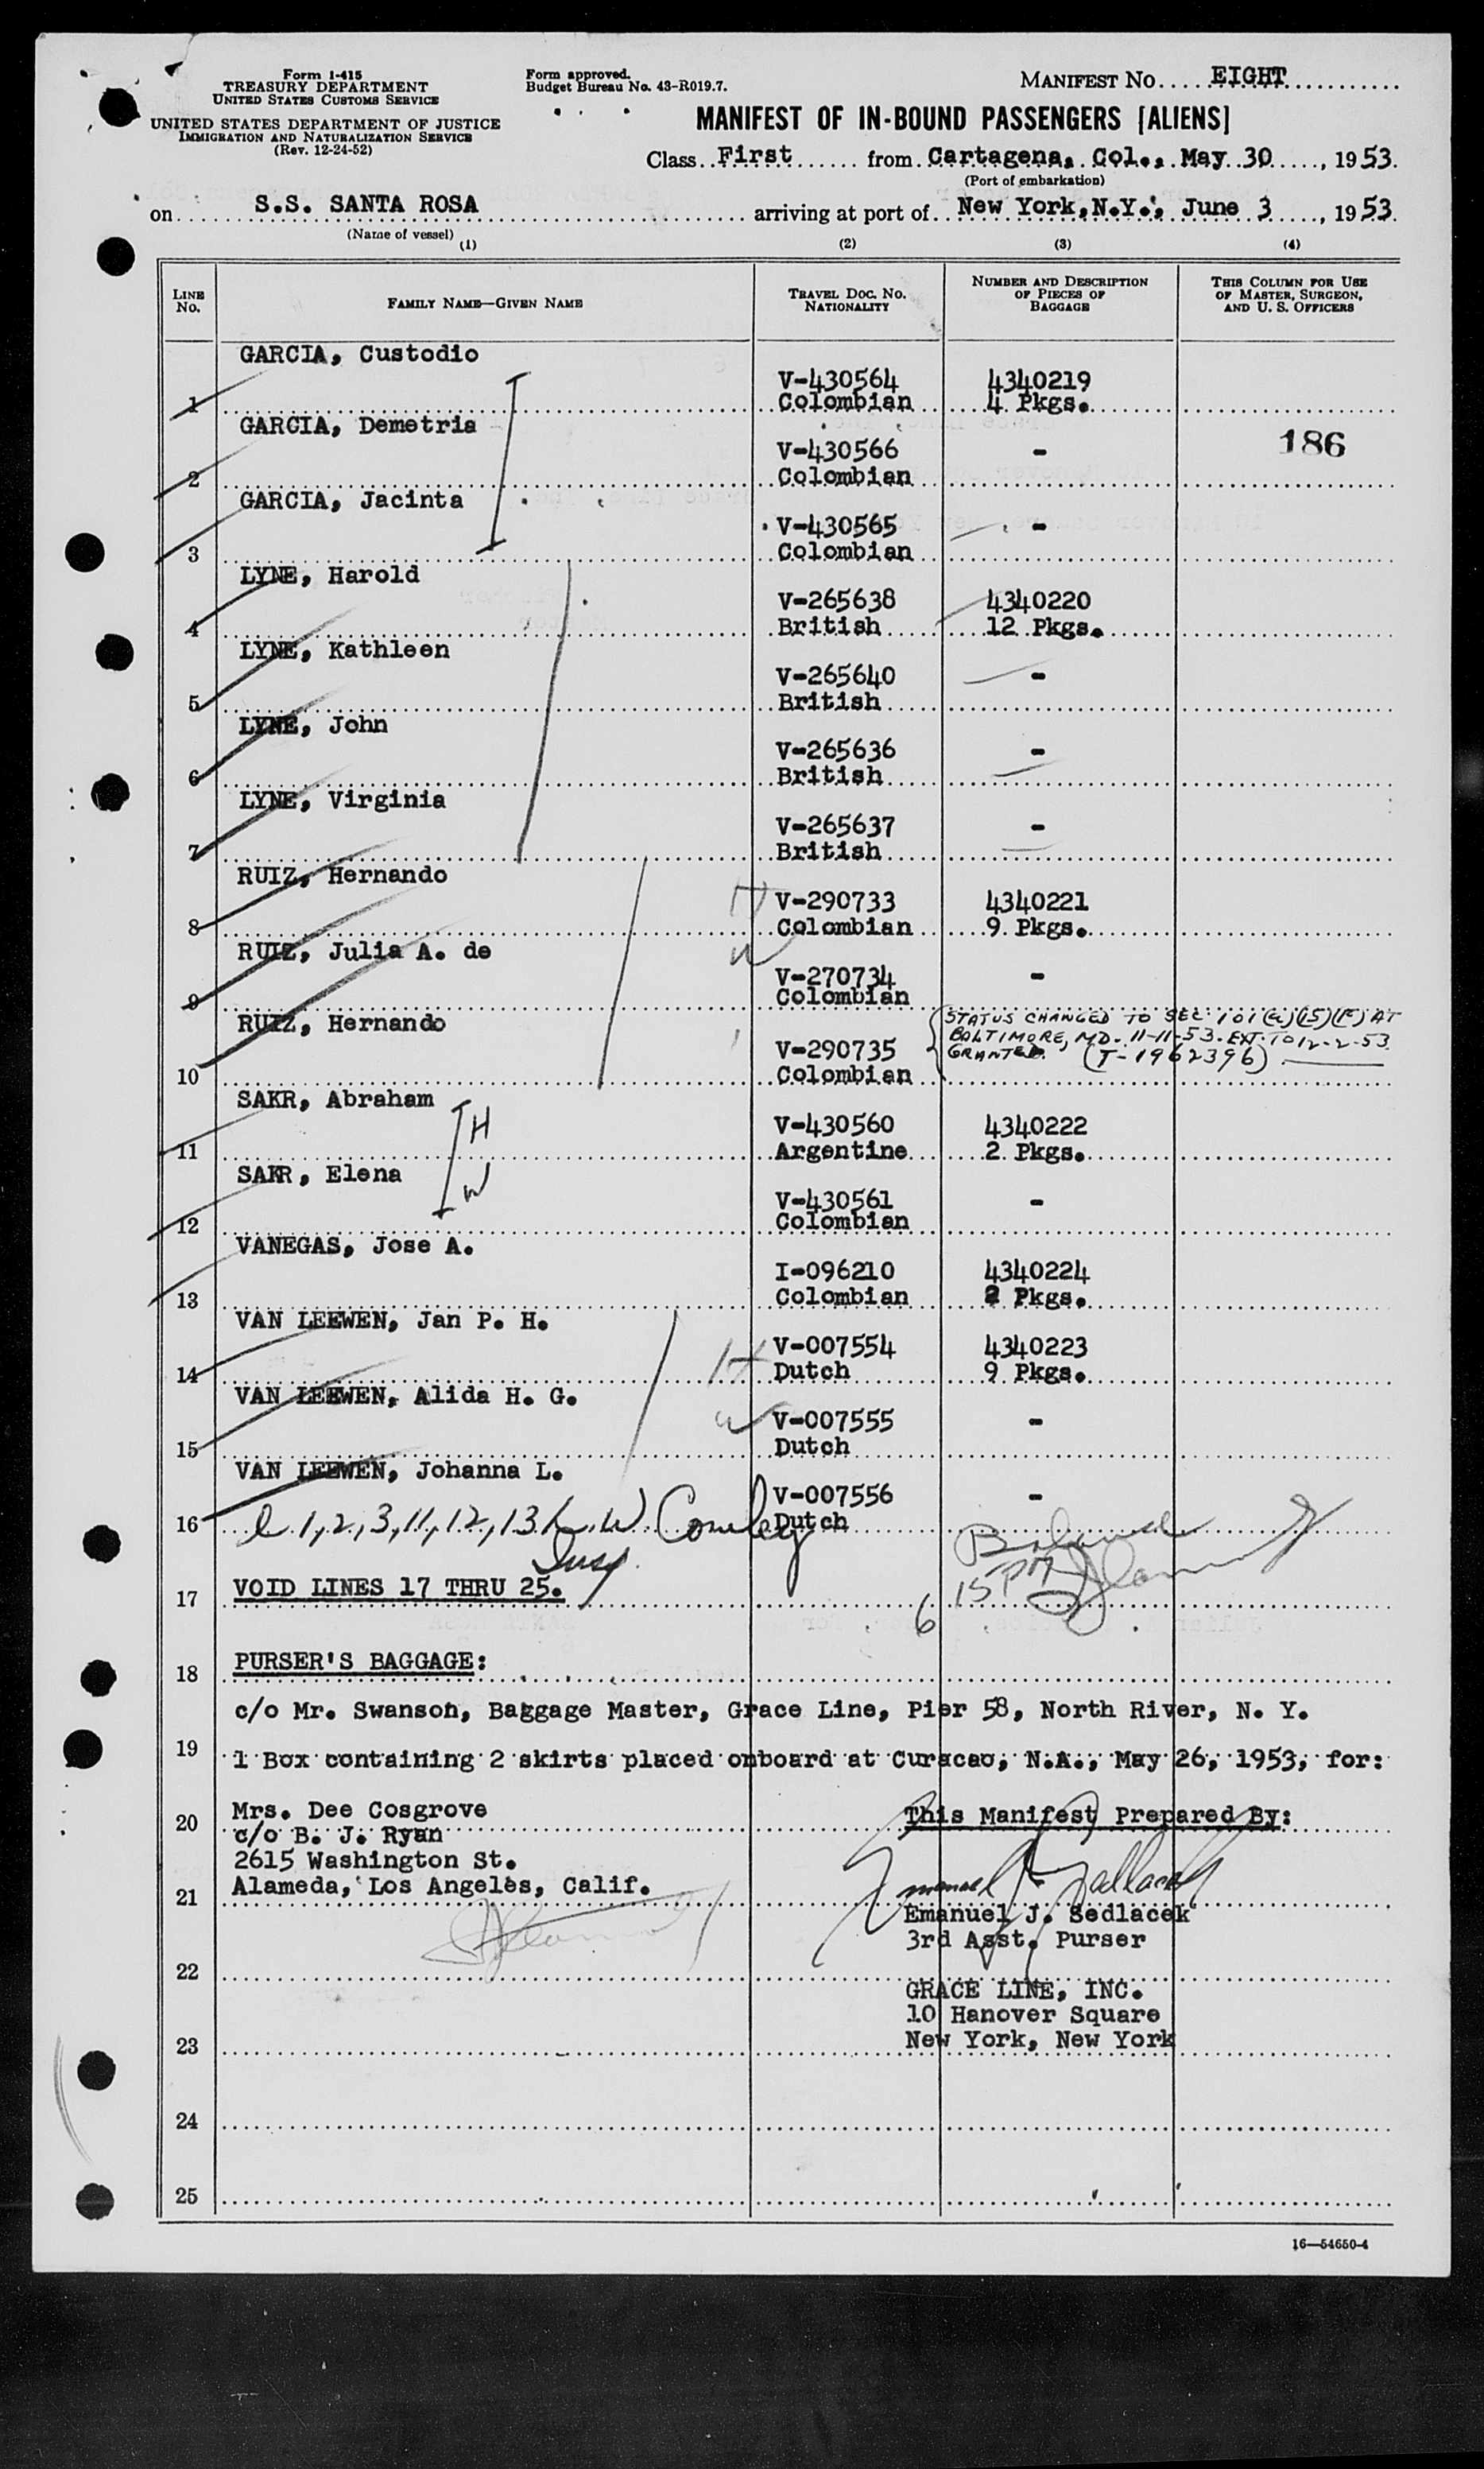 Form I-415
TREASURY DEPARTMENT
UNITED STATES CUSTOMS SERVICE
UNITED STATES DEPARTMENT OF JUSTICE
IMMIGRATION AND NATURALIZATION SERVICE
(Rev. 12-24-52)
Form approved.
Budget Bureau No. 43-R019.7.
MANIFEST NO. EIGHT
MANIFEST OF IN-BOUND PASSENGERS [ALIENS]
Class First from Cartagena, Col., May 30, 1953.
(Port of embarkation)
on S.S. SANTA ROSA arriving at port of New York, N.Y., June 3, 1953.
(Name of vessel)
(1) (2) (3) (4)
LINE NO. FAMILY NAME—GIVEN NAME TRAVEL DOC. NO. NATIONALITY NUMBER AND DESCRIPTION OF PIECES OF BAGGAGE THIS COLUMN FOR USE OF MASTER, SURGEON, AND U. S. OFFICERS
GARCIA, Custodio
V-430564 4340219
1 Colombian 4 Pkgs.
GARCIA, Demetria
V-430566 - 186
2 Colombian
GARCIA, Jacinta
V-430565 -
3 Colombian
LYNE, Harold
V-265638 4340220
4 British 12 Pkgs.
LYNE, Kathleen
V-265640 -
5 British
LYNE, John
V-265636 -
6 British
LYNE, Virginia
V-265637 -
7 British
RUIZ, Hernando
H V-290733 4340221
8 Colombian 9 Pkgs.
RUIZ, Julia A. de
W V-270734 -
9 Colombian
RUIZ, Hernando
STATUS CHANGED TO SEC. 101(a)(15)(F) AT
BALTIMORE, MD. 11-11-53. EXT. TO 12-2-53
GRANTED. (T-1962396)
V-290735
10 Colombian
SAKR, Abraham
H V-430560 4340222
11 Argentine 2 Pkgs.
SAKR, Elena
W V-430561 -
12 Colombian
VANEGAS, Jose A.
I-096210 4340224
13 Colombian 2 Pkgs.
VAN LEEWEN, Jan P. H.
H V-007554 4340223
14 Dutch 9 Pkgs.
VAN LEEWEN, Alida H. G.
W V-007555 -
15 Dutch
VAN LEEWEN, Johanna L.
V-007556 -
16 Dutch
l 1, 2, 3, 11, 12, 13 W. Conley
Insp.
17 VOID LINES 17 THRU 25.
6
18 PURSER'S BAGGAGE:
c/o Mr. Swanson, Baggage Master, Grace Line, Pier 58, North River, N. Y.
19 1 Box containing 2 skirts placed onboard at Curacao, N.A., May 26, 1953, for:
20 Mrs. Dee Cosgrove
c/o B. J. Ryan
2615 Washington St.
21 Alameda, Los Angeles, Calif.
This Manifest Prepared By:
Emanuel J. Sedlacek
Emanuel J. Sedlacek
3rd Asst. Purser
22
GRACE LINE, INC.
10 Hanover Square
23 New York, New York
24
25
16—54650-4